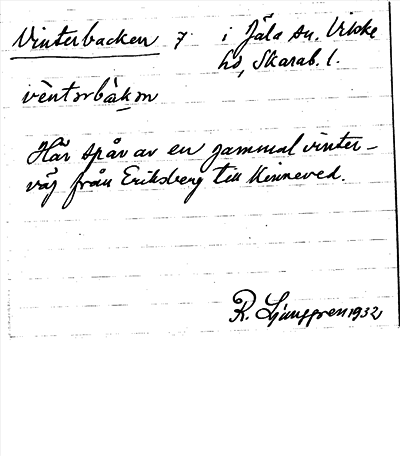 Vinterbacken 7 i Jäla sn. Vilske
hd, Skarab. l.
vèntorbàkɷn
Här spår av en gammal vinter-
väg från Eriksberg till Kinneved.
R. Ljunggren 1932